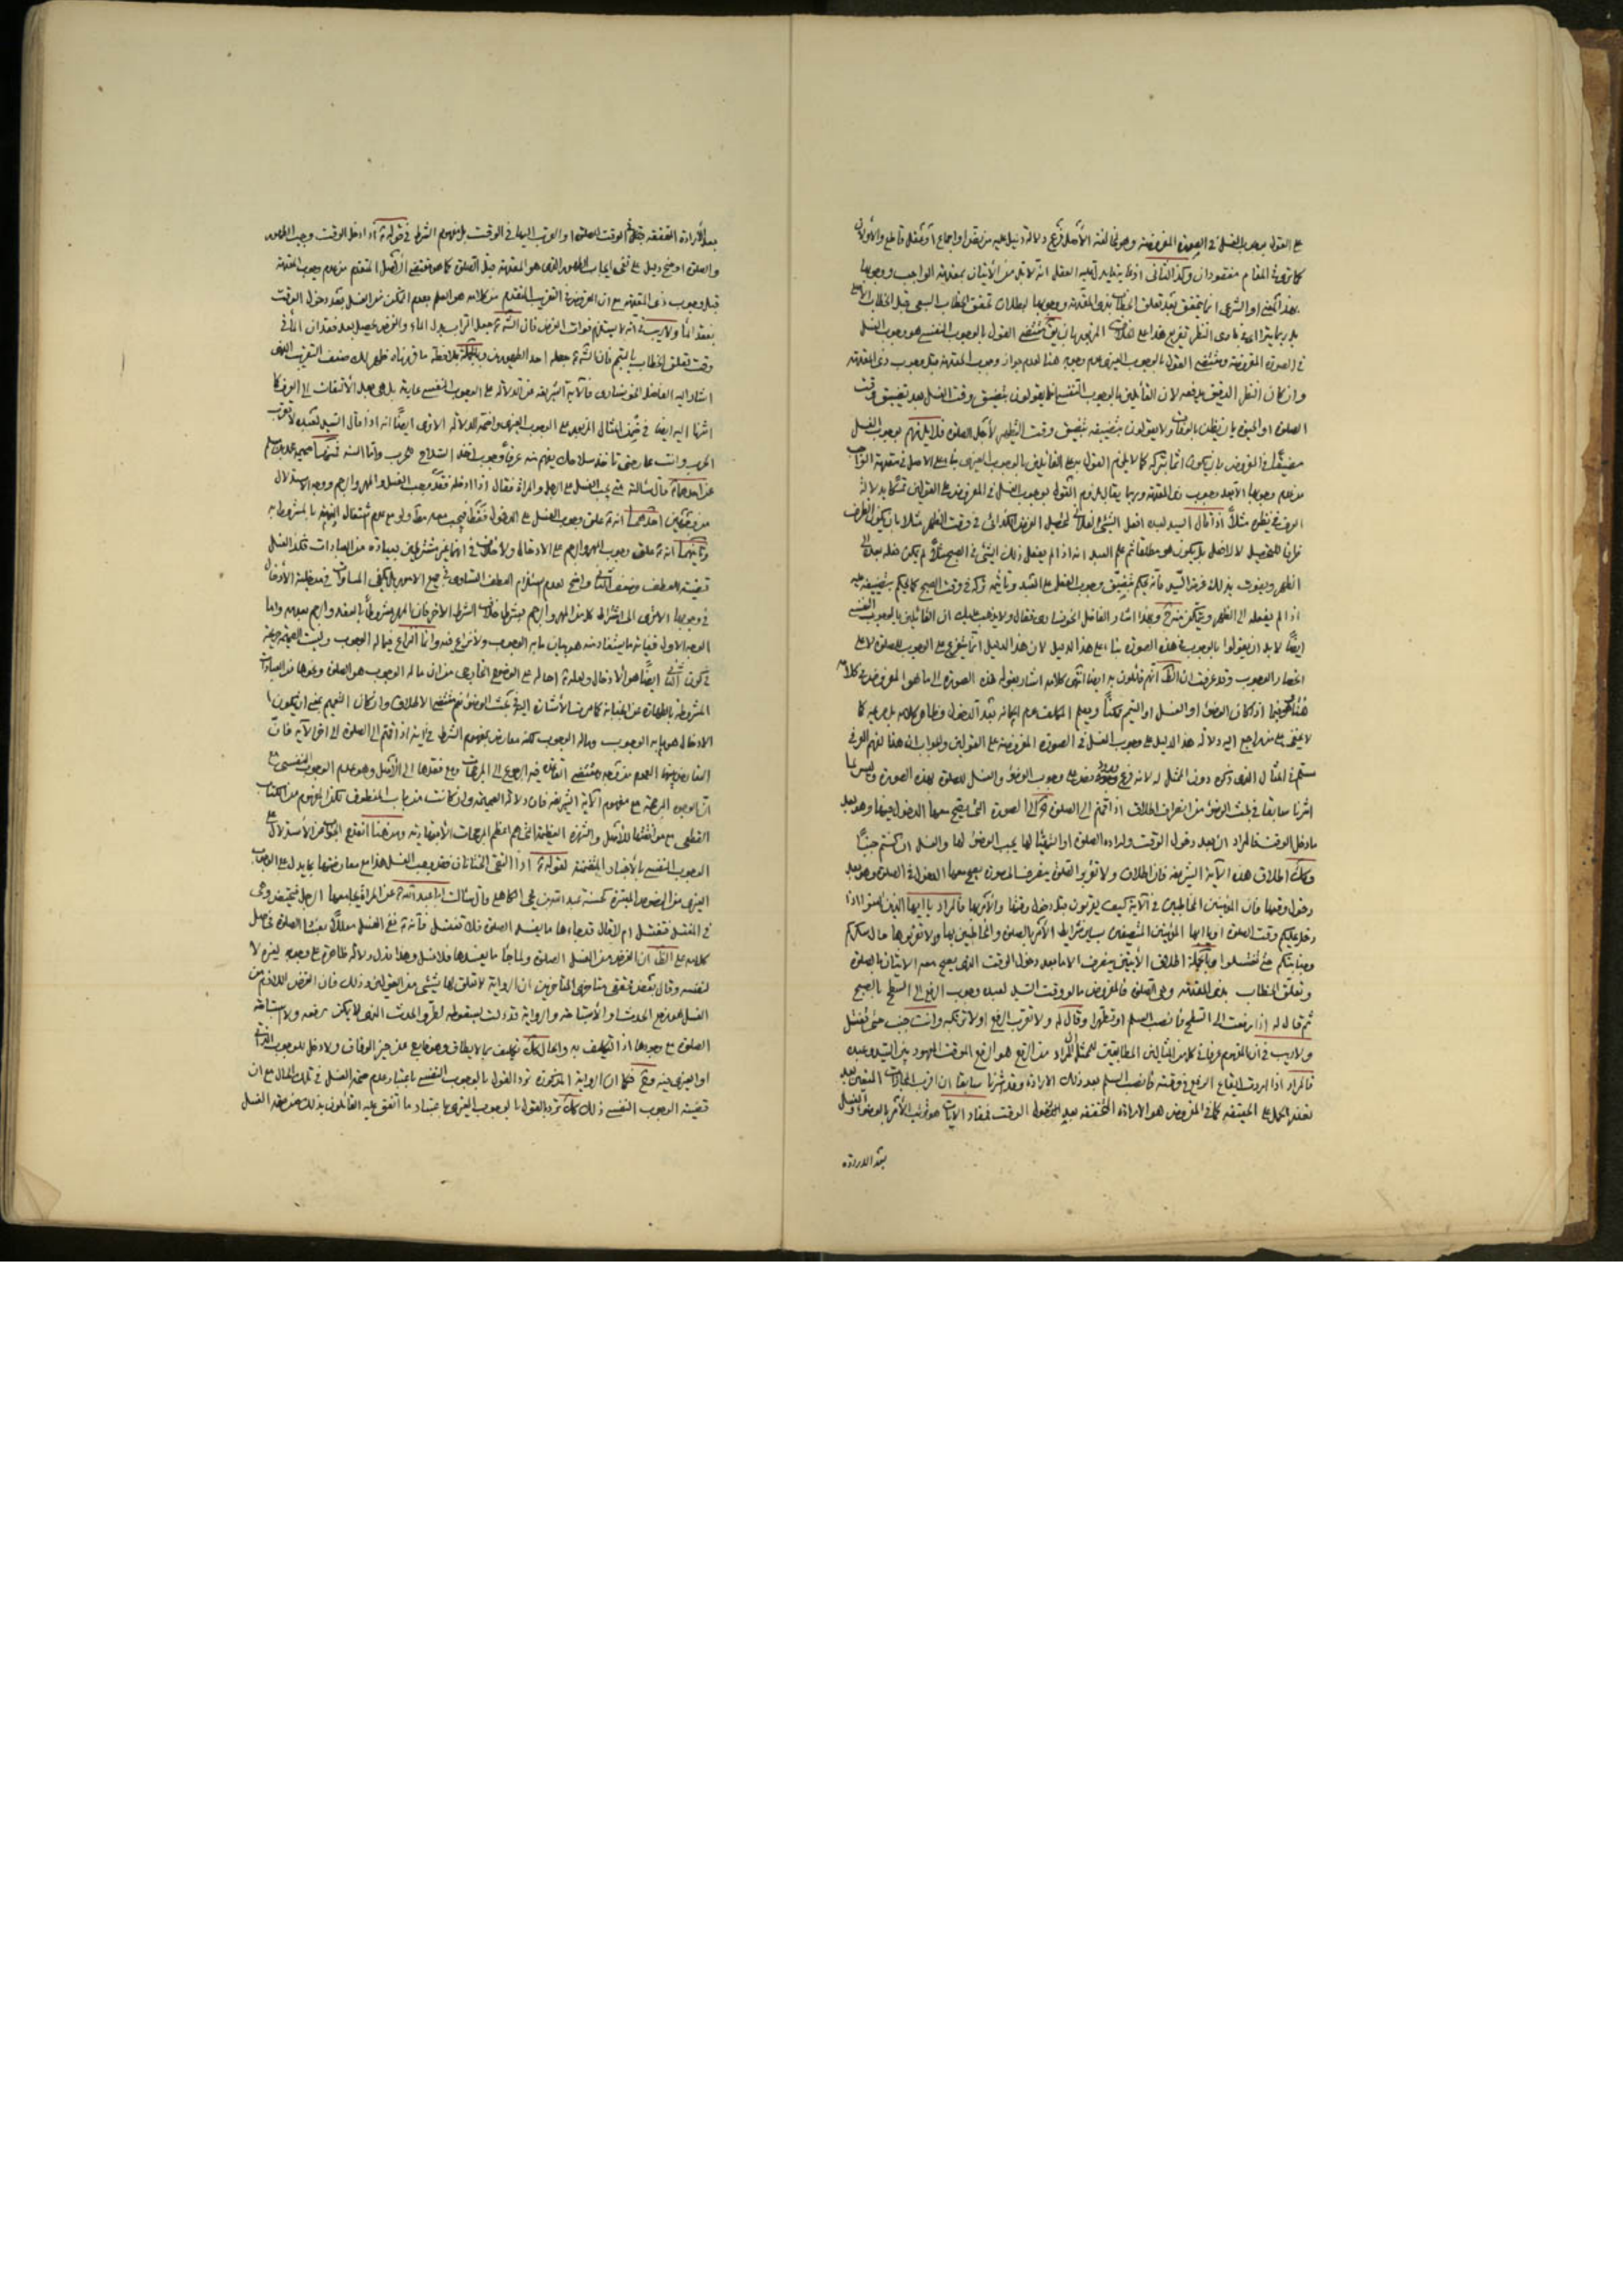 على القول بوجوب الغسل في الصورة المفروضة وهو مخالفة الأصل فرع دلالة دليل عليه من نقل او اجماع او عقل قاطع والأولان
كما ترى في المقام مفقودان وكذا الثاني اذ غاية ما يدل عليه العقل انه لا بد من الأتيان بمقدمة الواجب ووجوبها
بهذا المعنى او الشرعي انما يتحقق بعد تعلق الخطاب بذي المقدمة ووجوبها لبطلان تحقق الخطاب التبعي قبل الخطاب الأصلي
بل ربما يترااى في بادى النظر تفريع هذا على الخلاف المزبور بان يق مقتضى القول بالوجوب النفسي هو وجوب الغسل
في الصورة المفروضة ومقتضى القول بالوجوب الغيرى عدم وجوبه هنا لعدم جواز وجوب المقدمة قبل وجوب ذى المقدمة
وان كان النظر الدقيق يدفعه لان القائلين بالوجوب النفسي انما يقولون بتضيق وقت الغسل بعد تضيق وقت
الصلوة
من عدم وجوبها الا بعد وجوب ذى المقدمة وربما يقال بلزوم القول بوجوب الغسل في المفروض على القولين تمسكا بدلالة
العرف في نظيره مثلا اذا قال السيد لعبده افعل الشئ الفلانى لتحصيل الغرض الكذائى في وقت الظهر مثلا بان يكون الظرف
ظرفا للتحصيل لا لافعل بل يكون هو مطلقا ثم علم العبد انه اذا لم يفعل ذلك الشئ في الصبح مثلا لم يكن فعله بعده الى
الظهر ويفوت بذلك غرض السيد فانه يحكم بتضيق وجوب الفعل على العبد وتاثيمه بتركه في وقت الصبح كما يحكم بتضييقه عليه
اذا لم يفعله الى الظهر ويتمكن منه ح وبهذا اشار الفاضل الخونسارى فقال ولا يذهب عليك ان القائلين بالوجوب النفسي
ايضا لا بد ان يقولوا بالوجوب في هذه الصورة بناء على هذا الدليل لان هذا الدليل انما يتفرع على الوجوب للصلوة لا على
انحصار الوجوب وقد عرفت ان الظ انهم قائلون به ايضا انتهى كلامه اشار بقوله هذه الصورة الى ما هو المفروض في كلامه
لا يخفى على من راجع اليه دلالة هذا الدليل على وجوب الغسل في الصورة المفروضة على القولين والجواب ان هذا الفهم العرفي
اشرنا سابقا في بحث الوضوء من انصراف اطلاق اذا قمتم الى الصلوة الى الصورة التى يصح معها الدخول فيها وهو بعد
ما دخل الوقت فالمراد ان بعد دخول الوقت وارادة الصلوة او التهيئا لها يجب الوضوء لها والغسل ان كنتم جنبا
وكك اطلاق هذه الآية الشريفة فان اطلاق ولا تقربوا الصلوة ينصرف الى صورة يصح معها الدخول في الصلوة وهو بعد
دخول وقتها فان المؤمنين المخاطبين في الآية كيف يقربون قبل دخول وقتها والأمر بها فالمراد يا ايها الذين امنوا اذا
دخل عليكم وقت الصلوة او يا ايها المؤمنين المتصفين بساير شرايط الأمر بالصلوة والمخاطبين بها ولا تقربوها حال سكركم
وجنابتكم حتى تغتسلوا وبالجملة اطلاق الآيتين ينصرف الا ما بعد دخول الوقت الذى يصح معه الاتيان بالصلوة
وتعلق الخطاب بذى المقدمة وهى الصلوة فالمفروض ما لو وقت السيد لعبده وجوب الرفع الى السطح بالصبح
ثم قال له اذا رفعت الى السطح فانصب السلم او تطهرا وقال له ولا تقرب الرفع او لا ترتكبه وانت جنب حتى تغتسل
ولا ريب في ان المفهوم عرفا في كلا من المثالين المطابقين للممثل ان المراد من الرفع هو الرفع الموقت المعهود بين السيد وعبده
فالمراد اذا اردت ايقاع الرفع في وقته فانصب السلم بعد ذلك الارادة وقد اشرنا سابقا ان اقرب المجازات المتعين بعد
تعذر الحمل على الحقيقة كما في المفروض هو الارادة المحققة بعد دخول الوقت فمفاد الآيات هو ترتب الأمر بالوضوء والغسل
بعد الارادة
بعد الأرادة المحققة الوقت الصلوة او القرب اليها في الوقت بل مفهوم الشرط في قوله ع اذا دخل الوقت وجب الطهور
والصلوة اوضح دليل على نفى ايجاب الطهور الذى هو المقدمة قبل الصلوة كما هو مقتضى الأصل المتقدم من عدم وجوب المقدمة
قبل وجوب ذى المقدمة على ان المفروض في التقريب المتقدم من كلامه هو العلم بعدم التمكن من الغسل بعد دخول الوقت
بفقد الماء ولا ريب في انه لا يستلزم فوات الغرض فان الله تع جعل التراب بدل الماء والغرض يحصل بعد فقدان الماء في
وقت تعلق الخطاب بالتيمم فان الله تع جعله احد الطهورين وبالجملة بملاحظة ما قررناه ظهر لك ضعف التقريب الذى
اشار اليه الفاضل الخونسارى فالآية الشريفة من الدلالة على الوجوب النفسي عارية بل هى بعد الألتفات الى العرف كما
اشرنا اليه ايضا في ضمن المثال المزبور على الوجوب الغيرى واضحة الدلالة الا ترى ايضا انه اذا قال السيد لعبده لا تقرب
الحرب وانت عار حتى تاخذ سلاحك يفهم منه عرفا وجوب اخذ السلاح للحرب واما السنة فمنها صحيحة محمد بن مسلم
عن احدهما ع قال سالته متى يجب الغسل على الرجل والمراة فقال اذا ادخله فقد وجب الغسل والمهر والرجم ووجه الاستدلال
من وجهين احدهما انه ع علق وجوب الغسل على الدخول فقط فيجب معه مط ولو مع عدم اشتغال الذمة بالمشروط به
وثانيهما انه ع علق وجوب المهر والرجم على الادخال ولا خلاف في انهما غير مشترطين بعبادة من العبادات فكذا الغسل
قضية للعطف وضعف الثانى واضح لعدم استلزام العطف التساوى في جميع الامور بل يكفى المساواة في مدخلية الأدخال
في وجوبها الا ترى الى اشتراط كلا من المهر والرجم بشرط خلاف الشرط الاخر فان المهر مشروط بالعقد والرجم بعدمه واما
الوجه الاول فغاية ما يستفاد منه هو بيان ما به الوجوب ولا نزاع فيه وانما النزاع فيما له الوجوب وليست الصحيحة صريحة
في كون الثانى ايضا هو الأدخال ولعله ع احاله على الوضوح الخارجى من ان ما له الوجوب هو الصلوة ونحوها من العبادات
المشروطة بالطهارة عن الجنابة كما مرت الأشارة اليه في بحث الوضوء نعم مقتضى الاطلاق وان كان التعميم بمعنى ان يكون
الادخال هو ما به الوجوب وماله الوجوب لكنه معارض بمفهوم الشرط في اية اذا قمتم الى الصلوة الى اخر الآية فان
التعارض بينهما العموم من وجه ومقتضى القاعدة فيه الرجوع الى المرجحات ومع فقدها الى الأصل وهو عدم الوجوب النفسي مع
ان الوجوه المرجحة مع مفهوم الآية الشريفة فان دلالة الصحيحة وان كانت من باب المنطوق لكن المفهوم من الكتاب
القطعى مع موافقتها للأصل والشهرة العظيمة التى هى اعظم المرجحات الأجتهادية ومن هنا انقدح الجواب عن الأستدلال على
الوجوب النفسي بالأخبار المتضمنة لقوله ع اذا التقى الختانان فقد وجب الغسل هذا مع معارضتها بما يدل على الوجوب
الغيرى من النصوص المعتبرة كحسنة عبد الله بن يحيى الكاهلى قال سالت ابا عبد الله ع عن المراة يجامعها الرجل فتحيض وهى
في المغتسل فتغتسل ام لا قال قد جاءها ما يفسد الصلوة فلا تغتسل فانه ع نفى الغسل معللا بفساد الصلوة فحاصل
كلامه على الظ ان الغرض من الغسل الصلوة ولما جاء ما يفسدها فلا غسل وهذا يدل دلالة ظاهرة على وجوبه لغيره لا
لنفسه وقال بعض محققى متاخرى المتاخرين ان الرواية لا تعلق لها بشئ من القولين وذلك فان الغرض اللازم من
الغسل هو رفع الحدث او الأستباحة والرواية قد دلت بسقوطه لطرو الحدث الذى لا يمكن رفعه ولا استباحة
الصلوة مع وجودها اذ التكليف به والحال كك تكليف بما لا يطاق وهو خارج عن حيز الوفاق ولا دخل للوجوب الذاتى
او الغيرى فيه وح فكما ان الرواية المذكورة ترد القول بالوجوب النفسي باعتبار عدم صحة الغسل في تلك الحال مع ان
قضية الوجوب النفسي ذلك كك ترد القول بالوجوب الغيرى باعتبار ما اتفق عليه القائلون بذلك من صحة الغسل